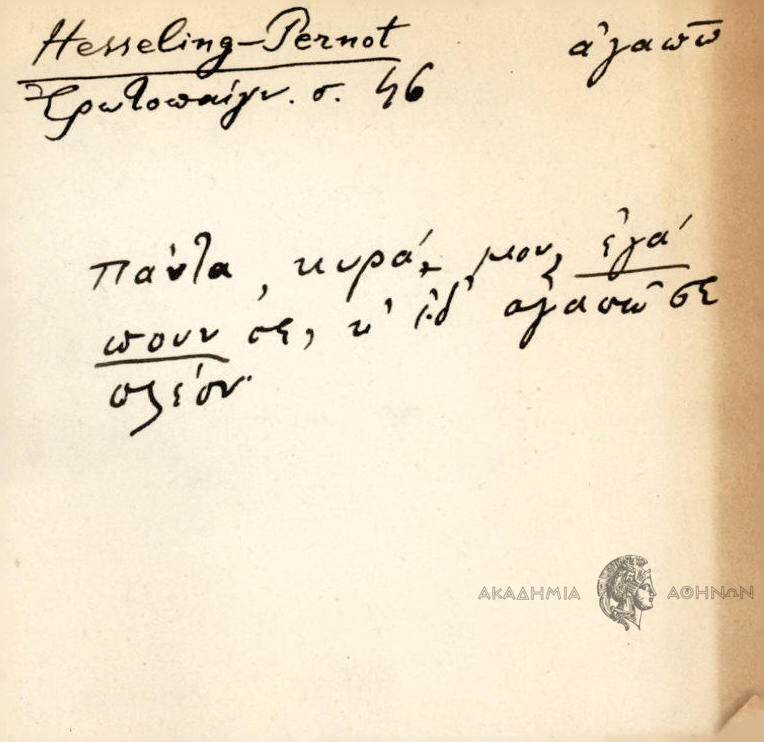 Hesseling-Pernot ἀγαπῶ
Ἐρωτοπαίγν. σ. 46
Πάντα, κυρά μου, ἐγά
πουν σε, κ' ἐδ' ἀγαπῶ σε
πλέον.
ΑΚΑΔΗΜΙΑ ΑΘΗΝΩΝ